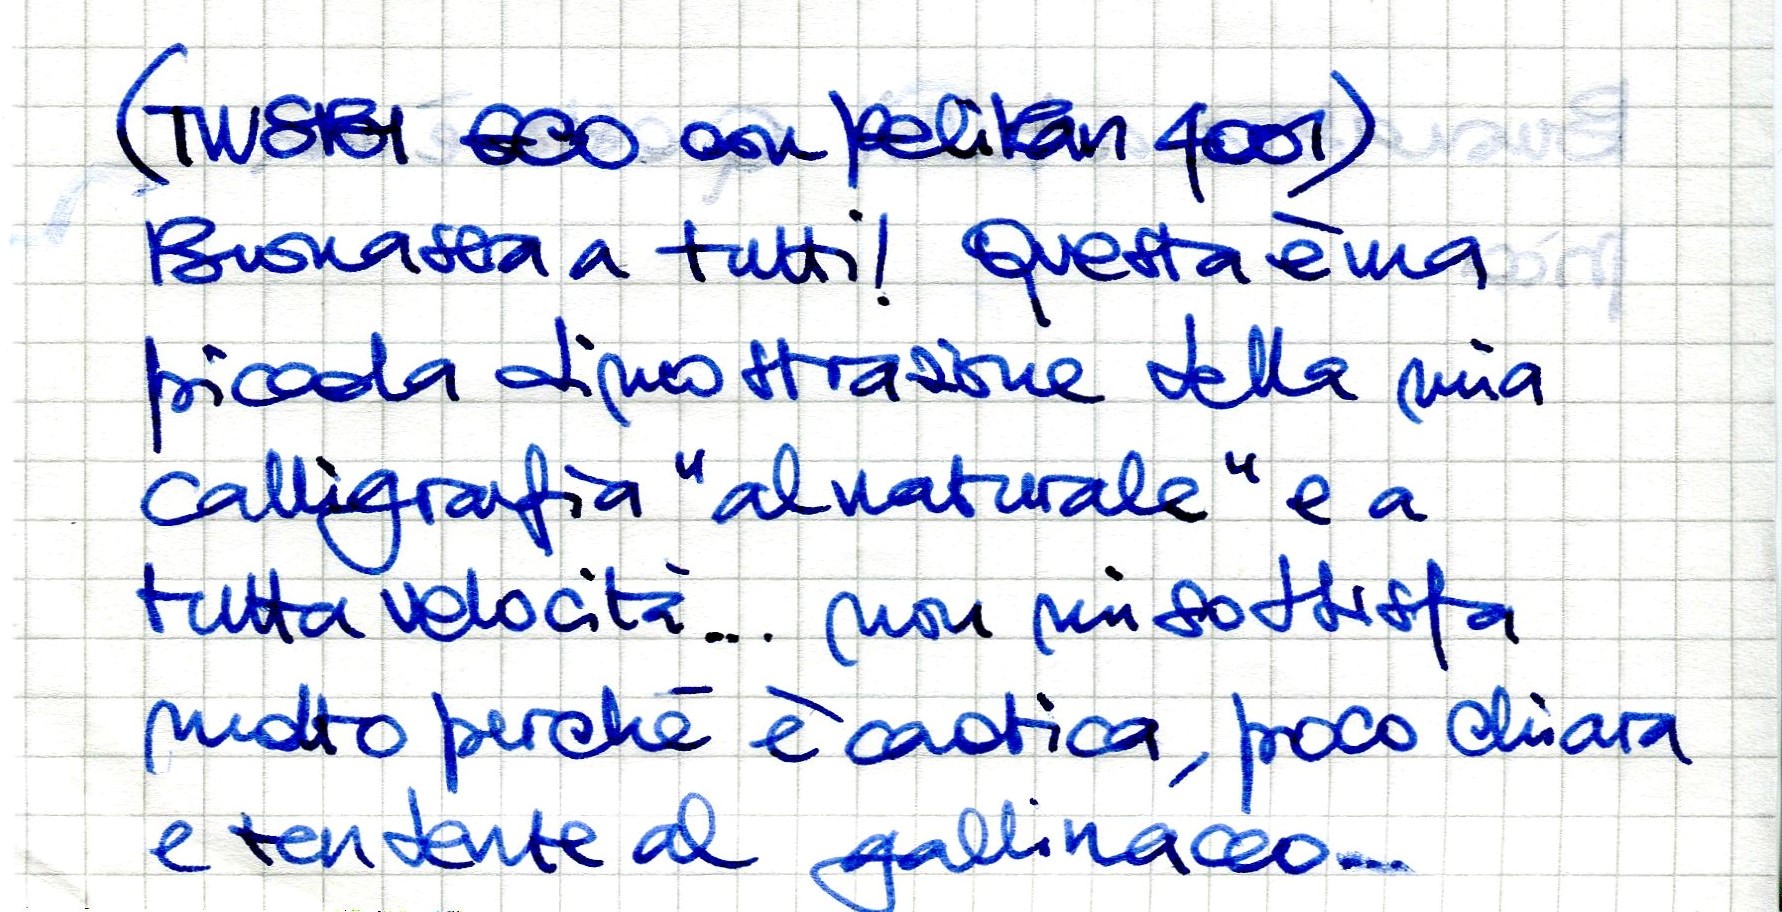 (TWSBI ECO con pelikan 4001)
Buonasera a tutti! Questa è una
piccola dimostrazione della mia
calligrafia "al naturale" e a
tutta velocità... non mi soddisfa
molto perché è caotica, poco chiara
e tendente al gallinaceo...